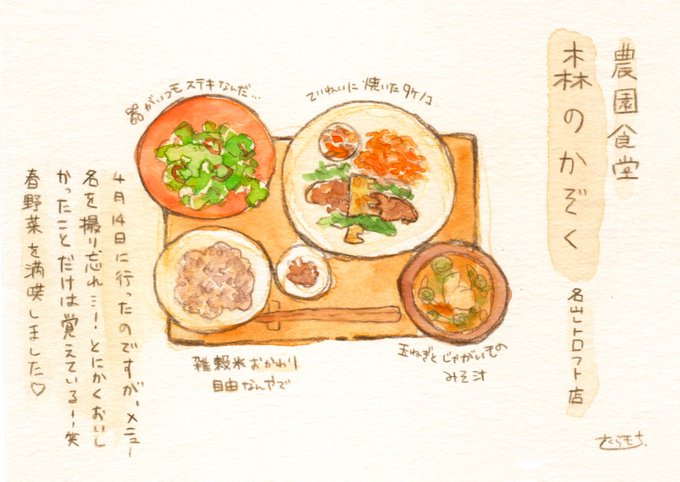 農園食堂
森のかぞく
名山レトロフト店
器がいつもステキなんだ…
ていねいに焼いたタケノコ
雑穀米おかわり
自由なんやで
玉ねぎとじゃがいもの
みそ汁
4月14日に行ったのですが、メニュー
名を撮り忘れ…！とにかくおいし
かったことだけは覚えているー！笑
春野菜を満喫しました♡
さくらもち.